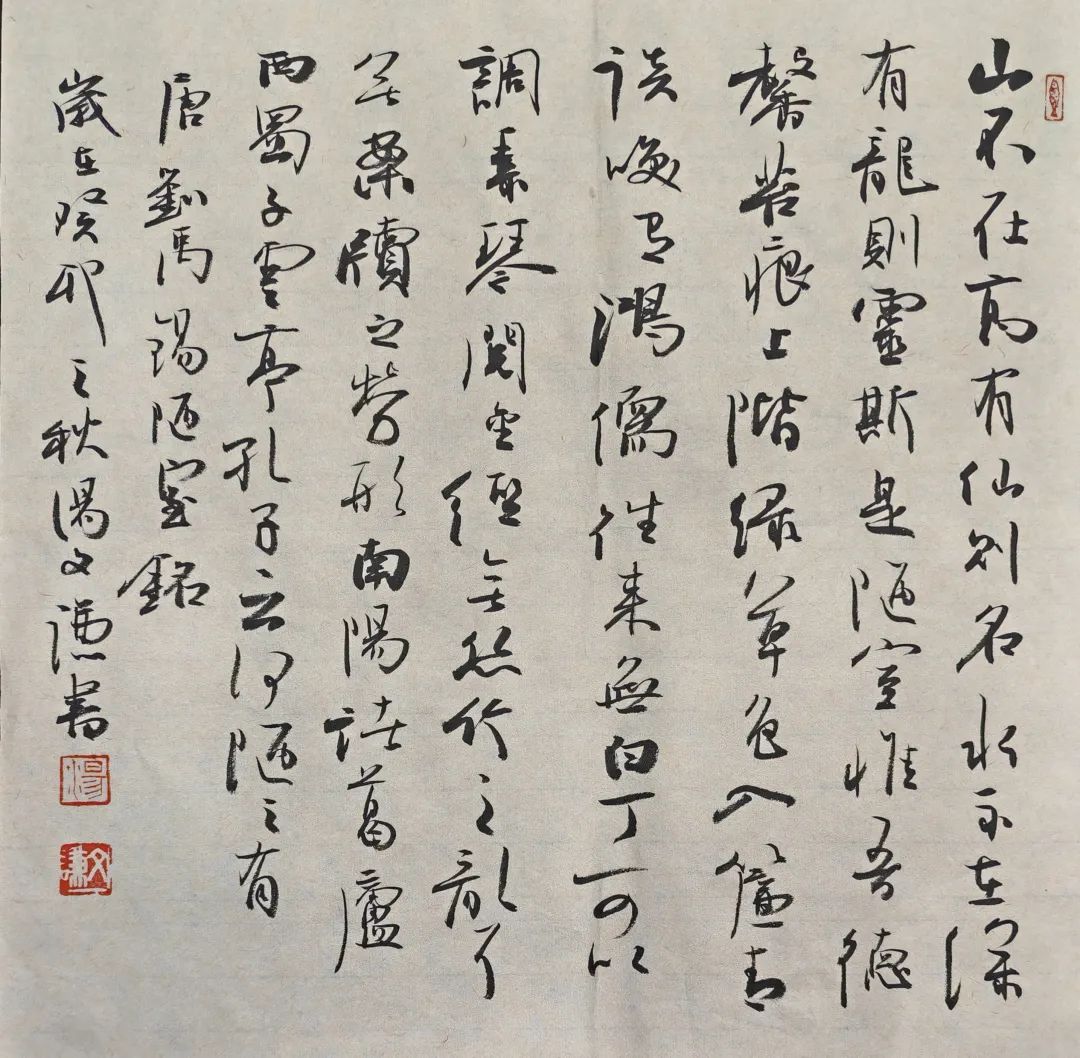 山不在高有仙則名水不在深
有龍則靈斯是陋室惟吾德
馨苔痕上階緑草色入簾青
談咲有鴻儒往来無白丁可以
調素琴閱金經無絲竹之亂耳
無案牘之勞形南陽諸葛廬
西蜀子雲亭孔子云何陋之有
唐劉禹錫陋室銘
歲在癸卯之秋湯文謙書
湯
文謙